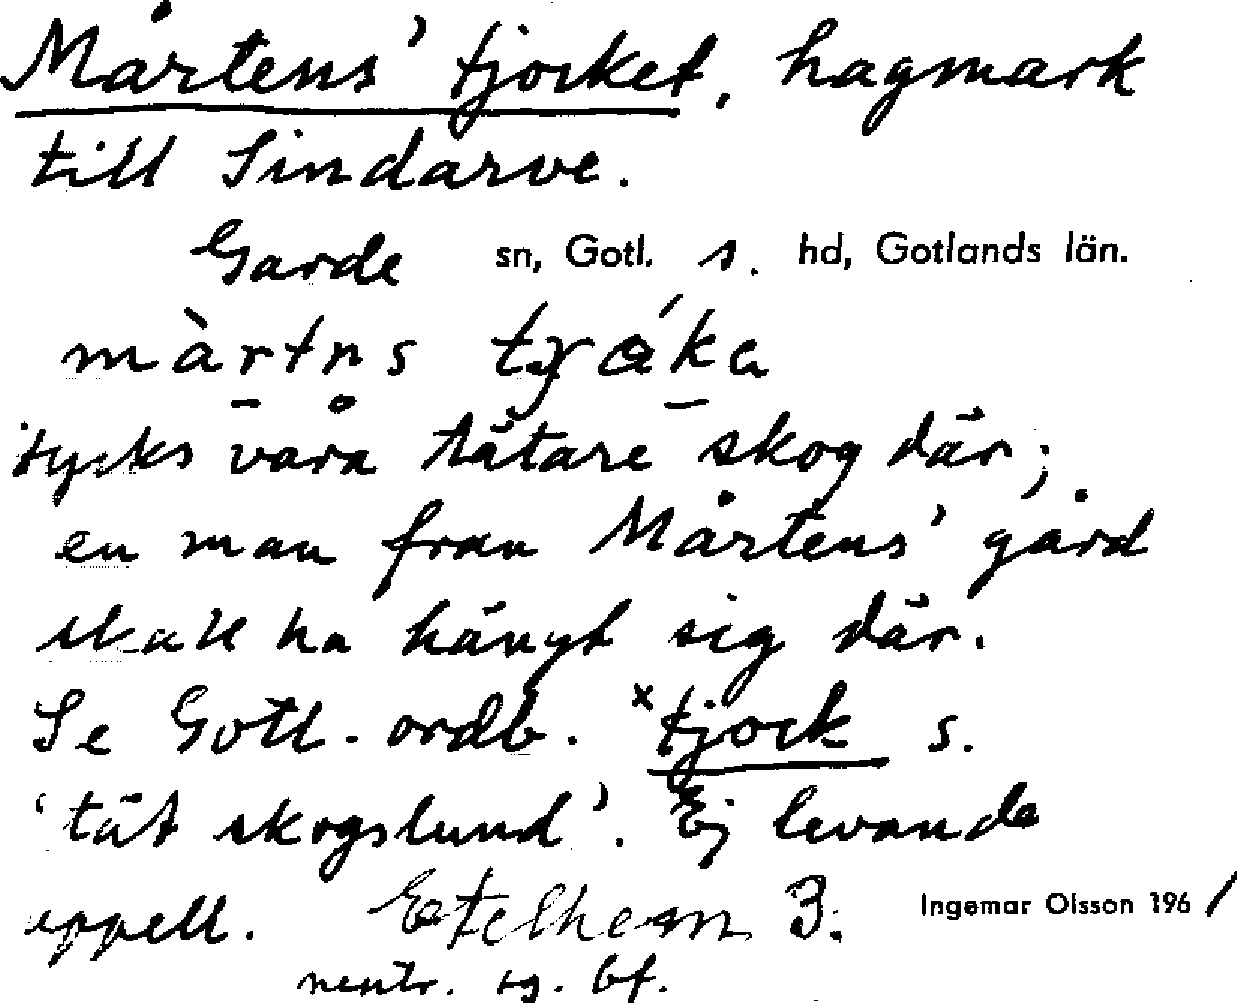 Mårtens' tjocket, hagmark
till Sindarve.
Garde sn, Gotl. s. hd, Gotlands län.
màrtns
tycks vara tätare skog där;
en man från Mårtens' gård
skall ha hängt sig där.
Se Gotl. ordb. ˣtjock s.
'tät skogslund'. Ej levande
appell. Etelhem 3. Ingemar Olsson 1961
neutr. sg. bf.